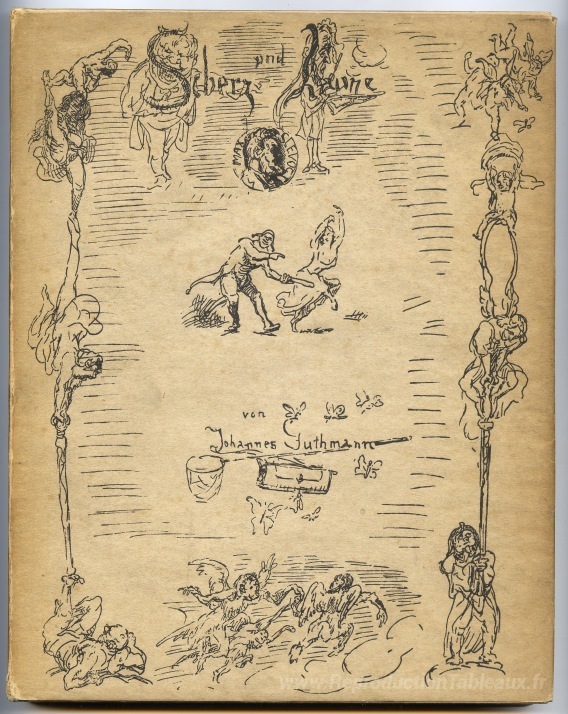 Scherz und Laune
von
Johannes Guthmann
www.ReproductionTableaux.fr